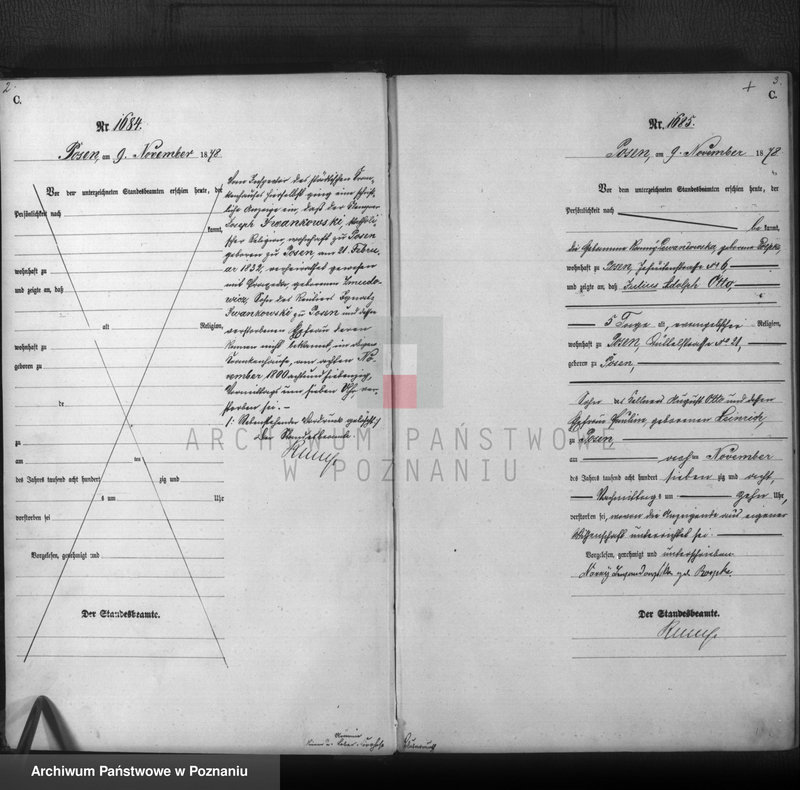 2.
C.
Nr. 1684.
Posen, am 9. November 1878
Vor der unterzeichneten Standesbeamten erschien heute, der
Persönlichkeit nach
kannt,
wohnhaft zu
und zeigte an, daß
alt Religion,
wohnhaft zu
geboren zu
de
zu
am ten
des Jahres tausend acht hundert zig und
s um Uhr
verstorben sei
Vorgelesen, genehmigt und
Der Standesbeamte.
Vom Inspector des städtischen Kran-
kenhauses hierselbst ging eine schrift-
liche Anzeige ein, daß der
Joseph Iwankowski, katholi-
scher Religion, wohnhaft zu Posen
geboren zu Posen, am 21. Febru-
ar 1832, verheirathet gewesen
mit Praxeda, geborenen
Sohn des Rentiers Ignatz
Iwankowski zu Posen und dessen
verstorbenen Ehefrau deren
Namen nicht bekannt, im obigen
Krankenhause, am achten No-
vember 1800 achtundsiebenzig,
Vormittags um sieben Uhr, ver-
storben sei. –
/: Nebenstehender Vordruck gelöscht :/
Der Standesbeamte
3.
C.
Nr. 1685.
Posen, am 9. November 1878
Vor dem unterzeichneten Standesbeamten erschien heute, der
Persönlichkeit nach
be kannt,
die Hebamme geborene
wohnhaft zu Posen, Jesuitenstraße № 6,
und zeigte an, daß Julius Adolph Otto
5 Tage alt, evangelischer Religion,
wohnhaft zu Posen, № 21,
geboren zu Posen,
Sohn des Kellners August Otto und dessen
Ehefrau Pauline, geborenen Heinrich,
zu Posen
am achten November
des Jahres tausend acht hundert siebenzig und acht,
Nachmittags um zehn Uhr,
verstorben sei, wovon die Anzeigende aus eigener
Wissenschaft unterrichtet sei.
Vorgelesen, genehmigt und unterschrieben
geb.
Der Standesbeamte.
ARCHIWUM PAŃSTWOWE
W POZNANIU
Archiwum Państwowe w Poznaniu